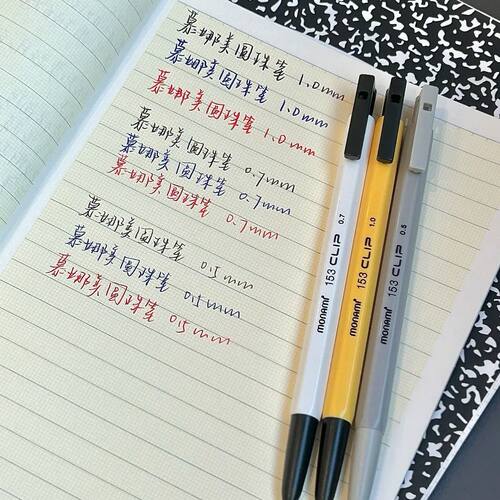 慕娜美圆珠笔 1.0mm
慕娜美圆珠笔 1.0mm
慕娜美圆珠笔 1.0mm
慕娜美圆珠笔 0.7mm
慕娜美圆珠笔 0.7mm
慕娜美圆珠笔 0.7mm
慕娜美圆珠笔 0.5mm
慕娜美圆珠笔 0.5mm
慕娜美圆珠笔 0.5mm
monami 153 CLIP 0.7
monami 153 CLIP 1.0
monami 153 CLIP 0.5